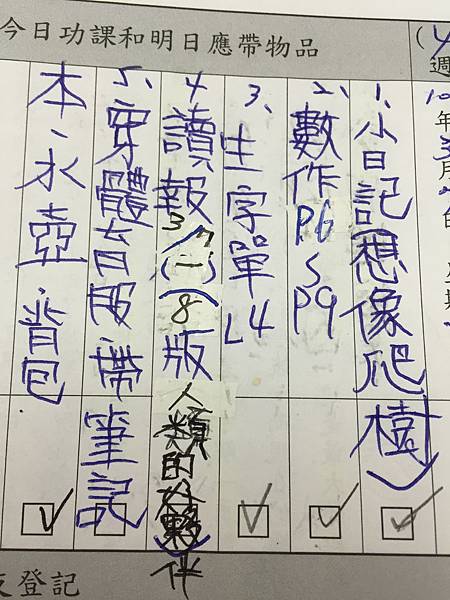 今日功課和明日應帶物品
(4
週
10
年3月
1、小日記(想像爬樹)
2、數作P6~P9
3、生字單L4
4、讀報3/7(一)(8版人類的好夥伴)
5、穿體育服、帶筆記
本、水壺、背包
登記